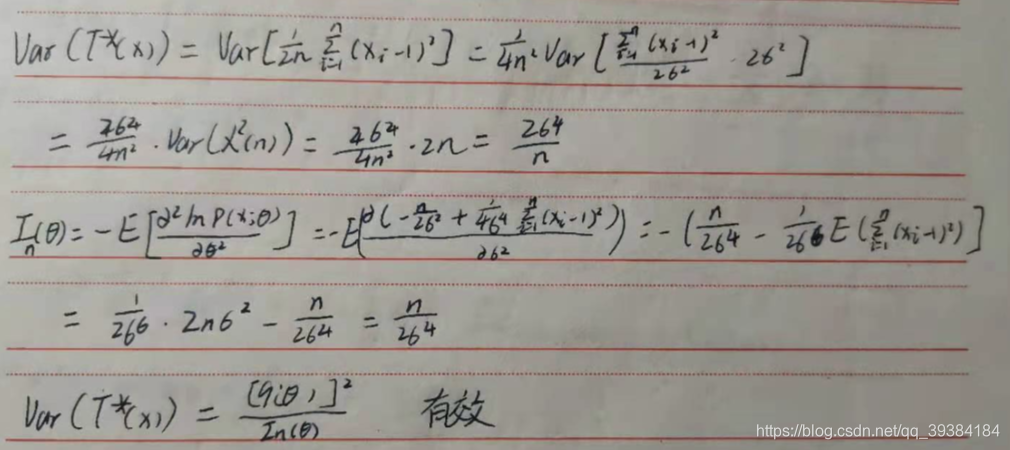 Var(T*(x)) = Var[1/2n Σ(i=1→n) (xi-1)²] = 1/4n² Var[Σ(i=1→n) (xi-1)² / 2σ² · 2σ²]
= 4σ⁴/4n² · Var(χ²(n)) = 4σ⁴/4n² · 2n = 2σ⁴/n
In(θ) = -E[∂² ln P(x;θ) / ∂θ²] = -E(∂(-n/2σ² + 1/4σ⁴ Σ(i=1→n) (xi-1)²) / ∂σ²) = -(n/2σ⁴ - 1/2σ⁶ E(Σ(i=1→n) (xi-1)²)]
= 1/2σ⁶ · 2nσ² - n/2σ⁴ = n/2σ⁴
Var(T*(x)) = [g'(θ)]² / In(θ) 有效
https://blog.csdn.net/qq_39384184